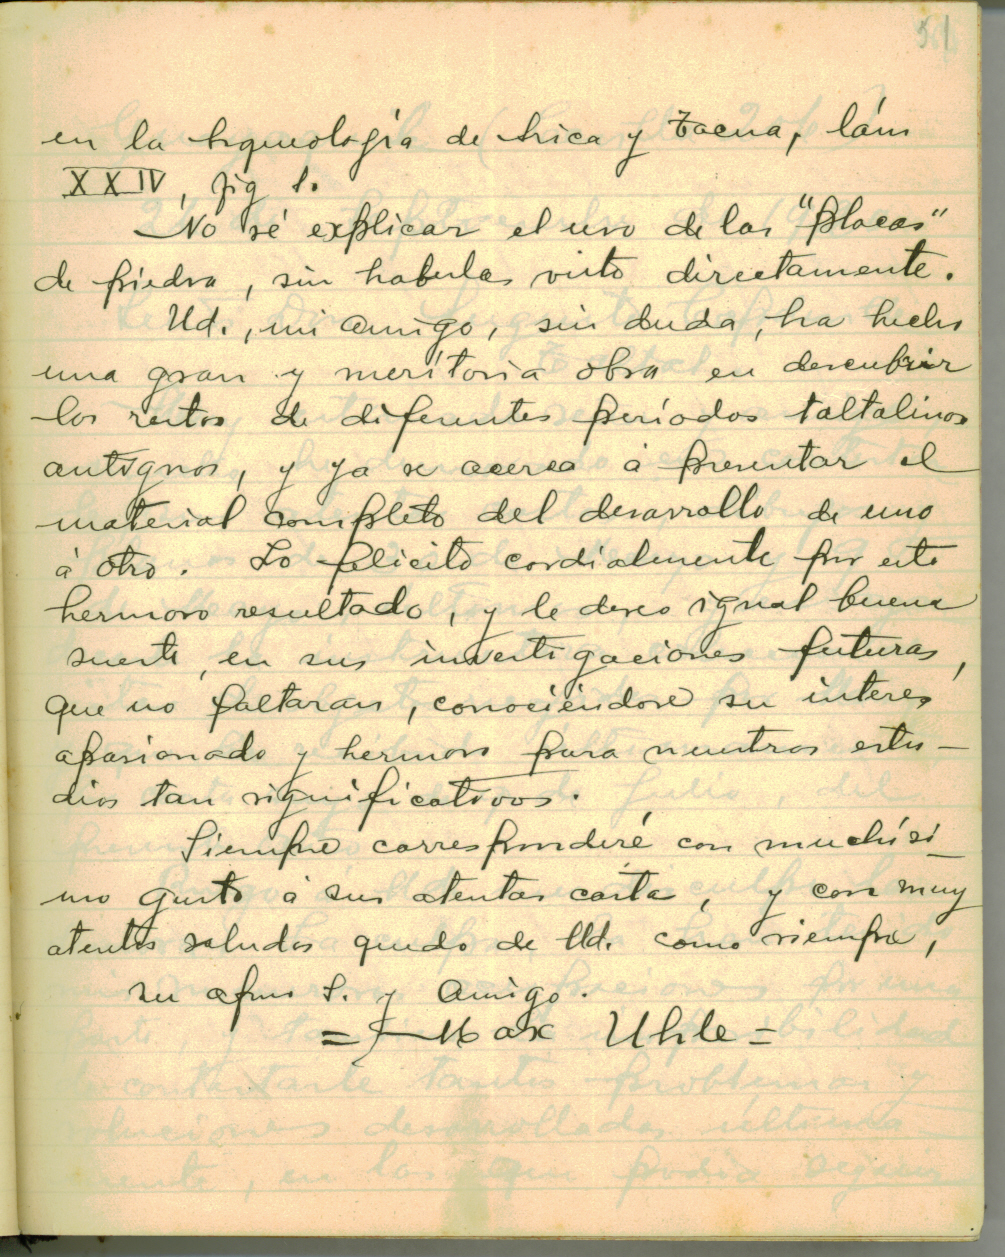 51
en la Arqueología de Arica y Tacna, lám
XXIV, fig 1.
No sé explicar el uso de las "placas"
de piedra, sin haberlas visto directamente.
Ud., mi amigo, sin duda, ha hecho
una gran y meritoria obra en descubrir
los restos de diferentes períodos taltalinos
antiguos, y ya se acerca á presentar el
material completo del desarrollo de uno
á otro. Lo felicito cordialmente por este
hermoso resultado, y le deseo igual buena
suerte, en sus investigaciones futuras,
que no faltaran, conociéndose su interés
apasionado y hermoso para nuestros estu-
dios tan significativos.
Siempre corresponderé con muchísi-
mo gusto á sus atentas carta, y con muy
atentos saludos quedo de Ud. como siempre,
su afmo S. y amigo.
= Max Uhle =